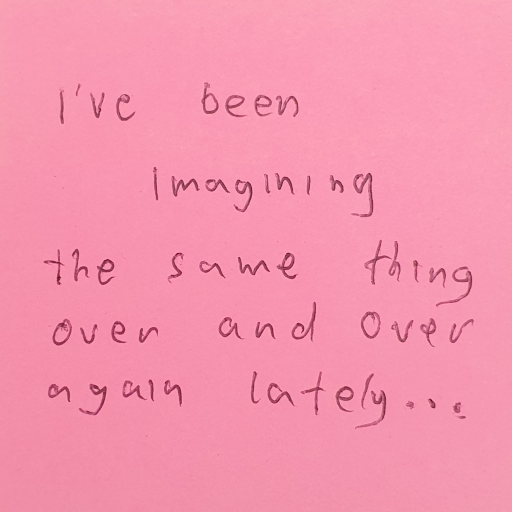 I've been
imagining
the same thing
over and over
again lately...